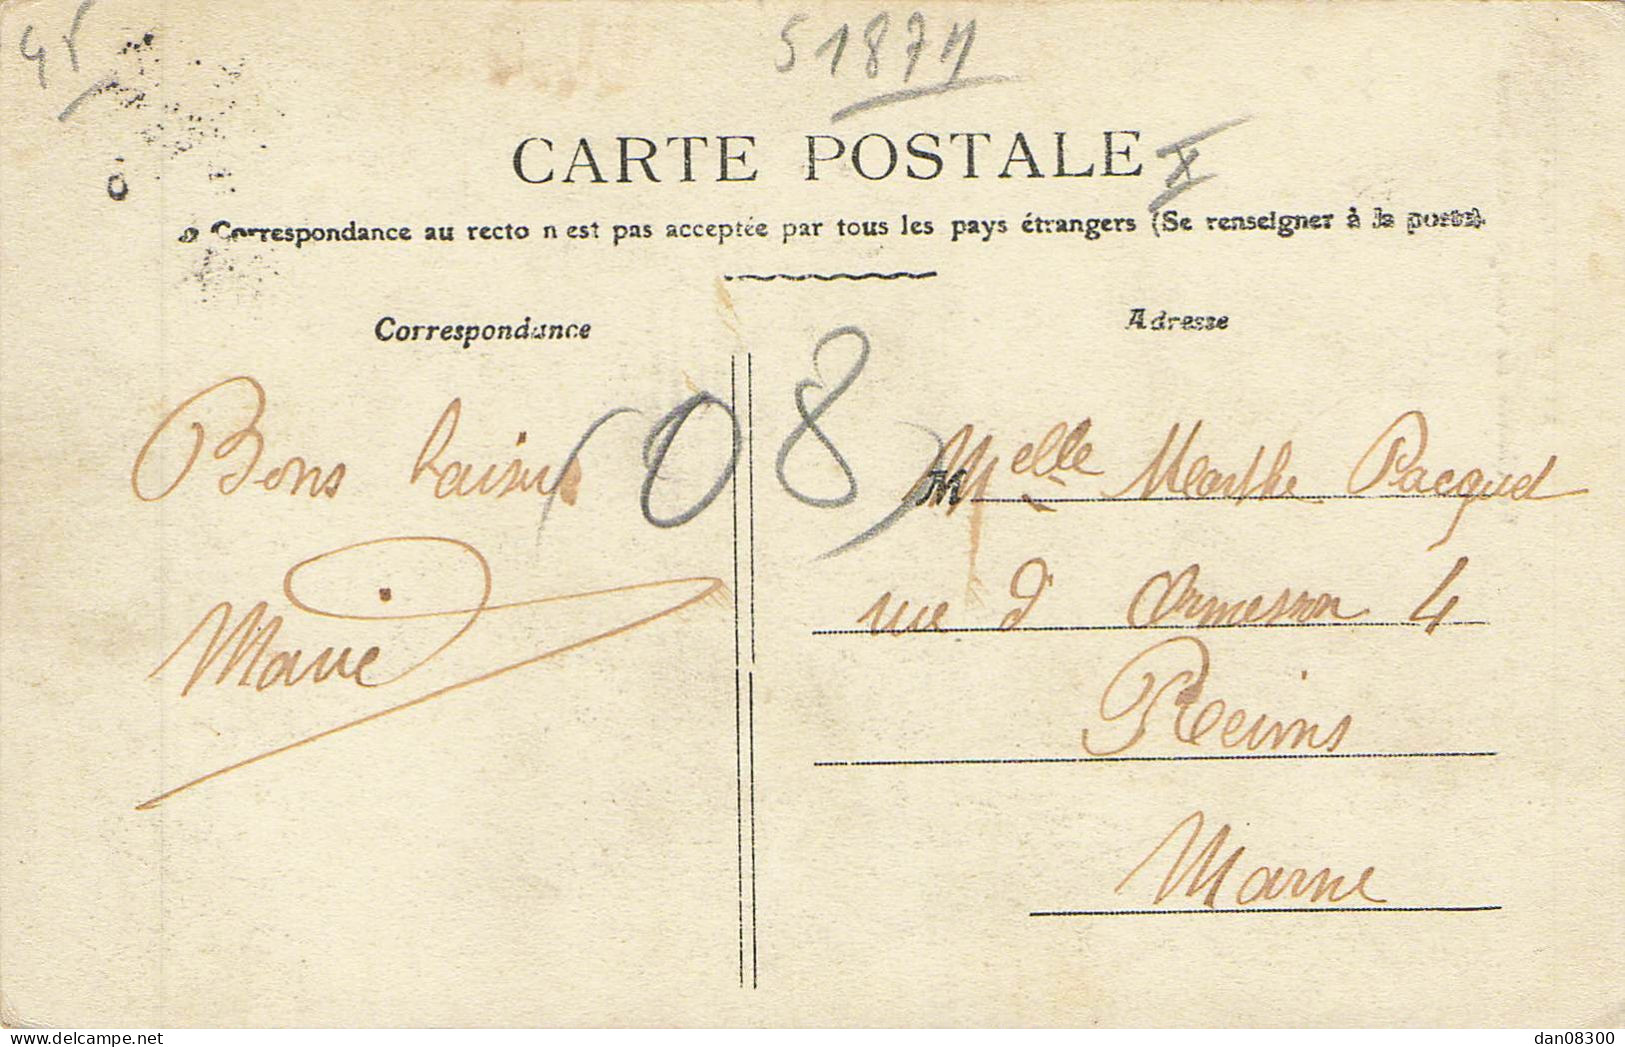 45
51874
CARTE POSTALE
Correspondance au recto n est pas acceptée par tous les pays étrangers (Se renseigner à la poste)
Correspondance
Adresse
(08)
Bons baisers
Marie
M Melle Marthe Pacquet
rue d' Ormesson 4
Reims
Marne
www.delcampe.net
dan08300